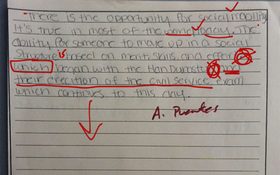 There is the opportunity for social mobility
It's true in most of the world today. The
ability for someone to move up in a social
structure is based on merit, skills, and effort
which began with the Han Dynasty
their creation of the civil service exam
which continues to this day.
A. Puentes